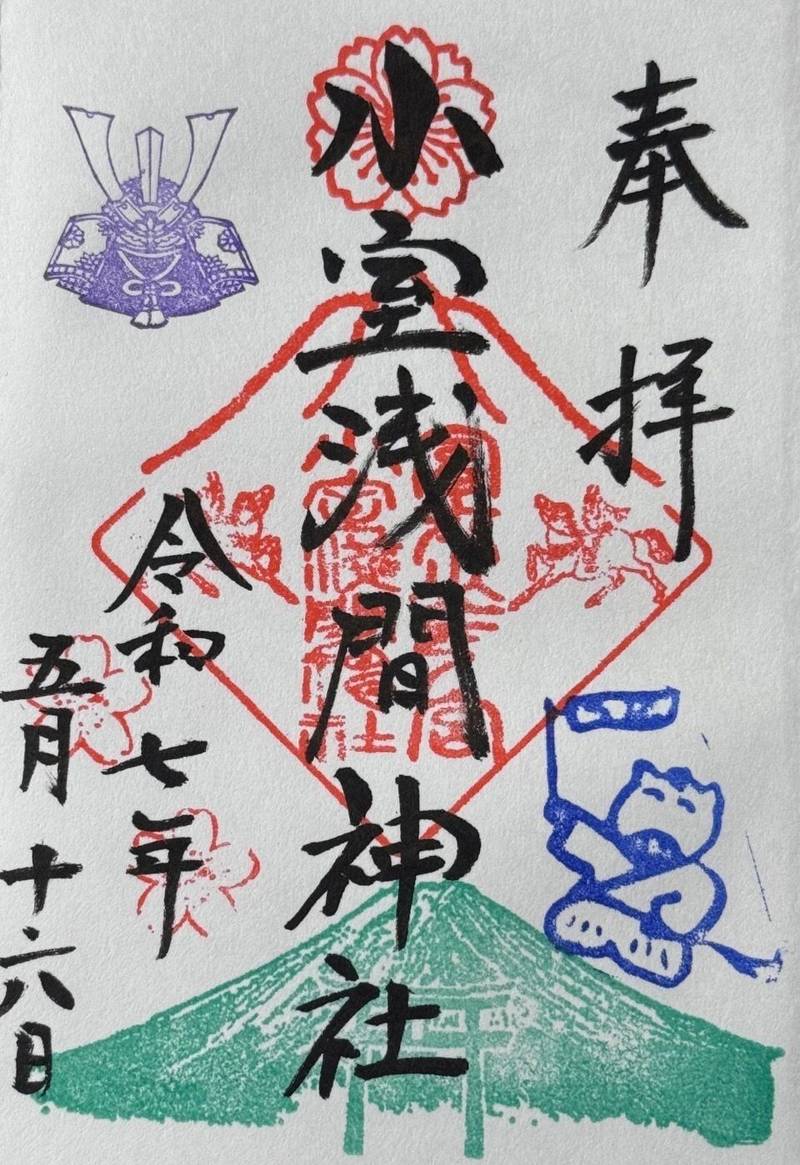 奉拝
小室浅間神社
令和七年
五月十六日